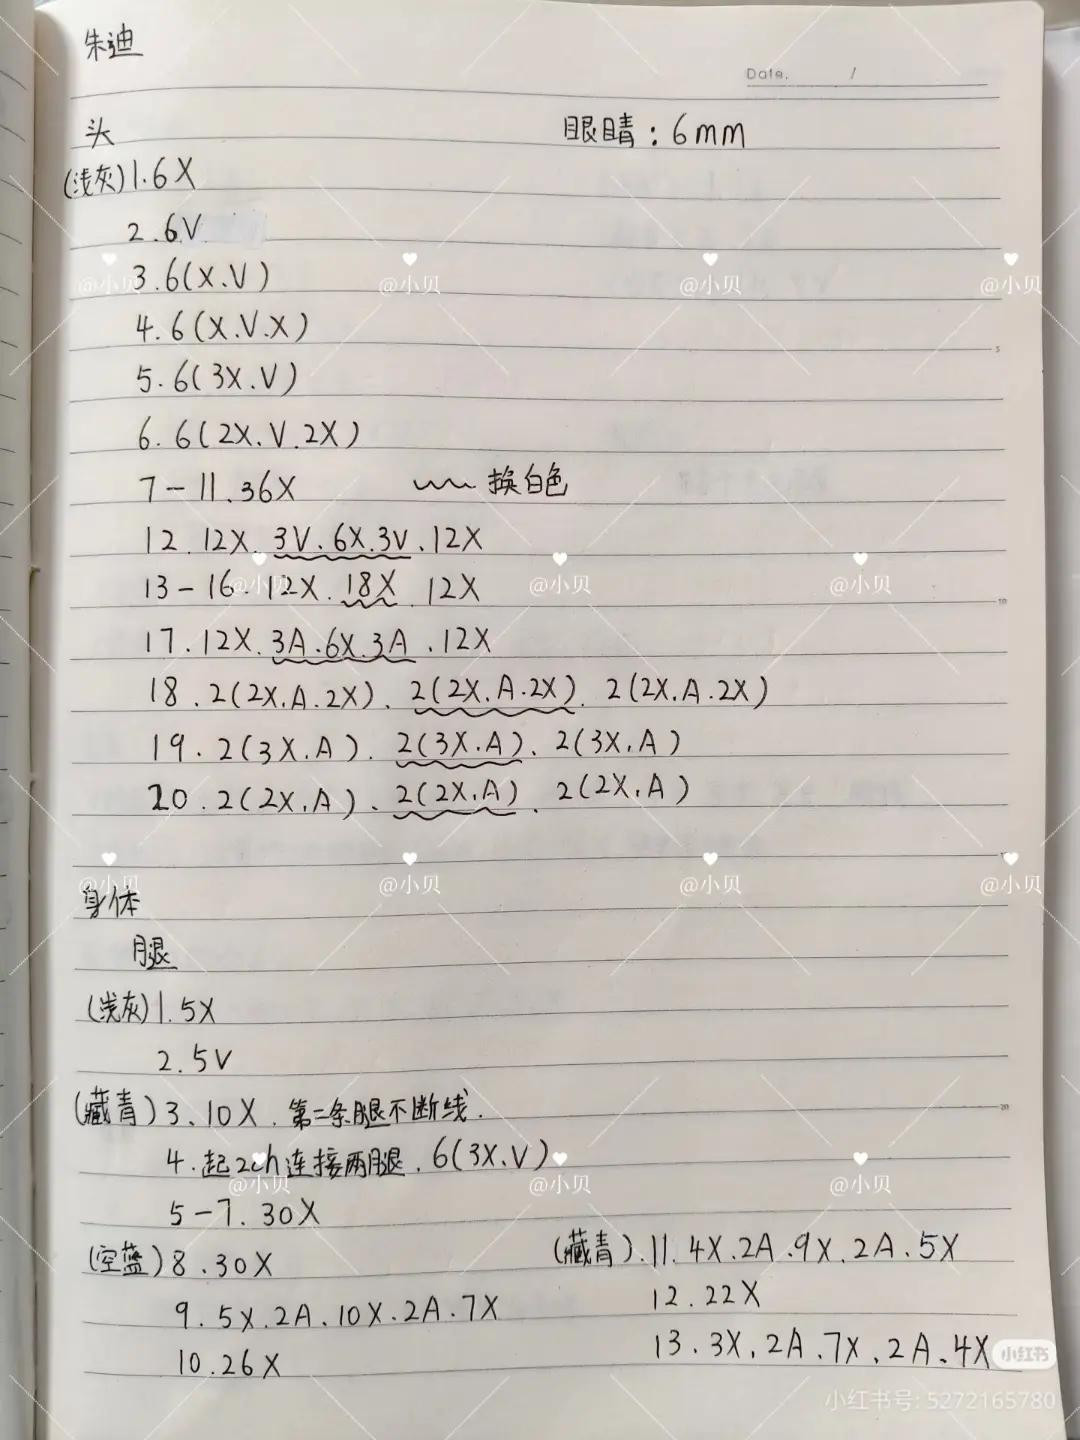 朱迪
Date. /
头
眼睛：6mm
(浅灰)1.6X
2.6V
3.6(X.V)
4.6(X.V.X)
5.6(3X.V)
6.6(2X.V.2X)
7-11.36X
换白色
12.12X.3V.6X.3V.12X
13-16.12X.18X.12X
17.12X.3A.6X.3A.12X
18.2(2X.A.2X).2(2X.A.2X).2(2X.A.2X)
19.2(3X.A).2(3X.A).2(3X.A)
20.2(2X.A).2(2X.A).2(2X.A)
身体
腿
(浅灰)1.5X
2.5V
(藏青)3.10X.第二条腿不断线.
4.起2ch连接两腿.6(3X.V)
5-7.30X
(空蓝)8.30X
9.5X.2A.10X.2A.7X
10.26X
(藏青).11.4X.2A.9X.2A.5X
12.22X
13.3X.2A.7X.2A.4X
5
10
20
@小贝 @小贝 @小贝 @小贝
@小贝 @小贝 @小贝
@小贝 @小贝 @小贝 @小贝
@小贝 @小贝 @小贝
小红书
小红书号: 5272165780